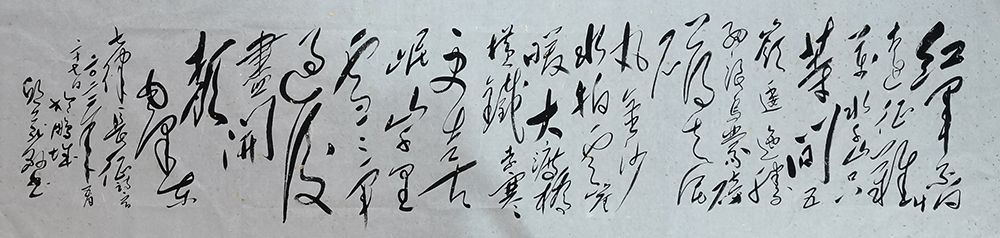 红军不怕
远征难
万水千山只
等闲五
岭逶迤腾
细浪乌蒙磅
礴走泥
丸金沙
水拍云崖
暖大渡橋
横鐵索寒
更喜
岷山千里
雪三军
过后
盡開
颜
毛泽东
七律 长征
二〇一三年 月
二十七日 于鹏城
邱 敬书